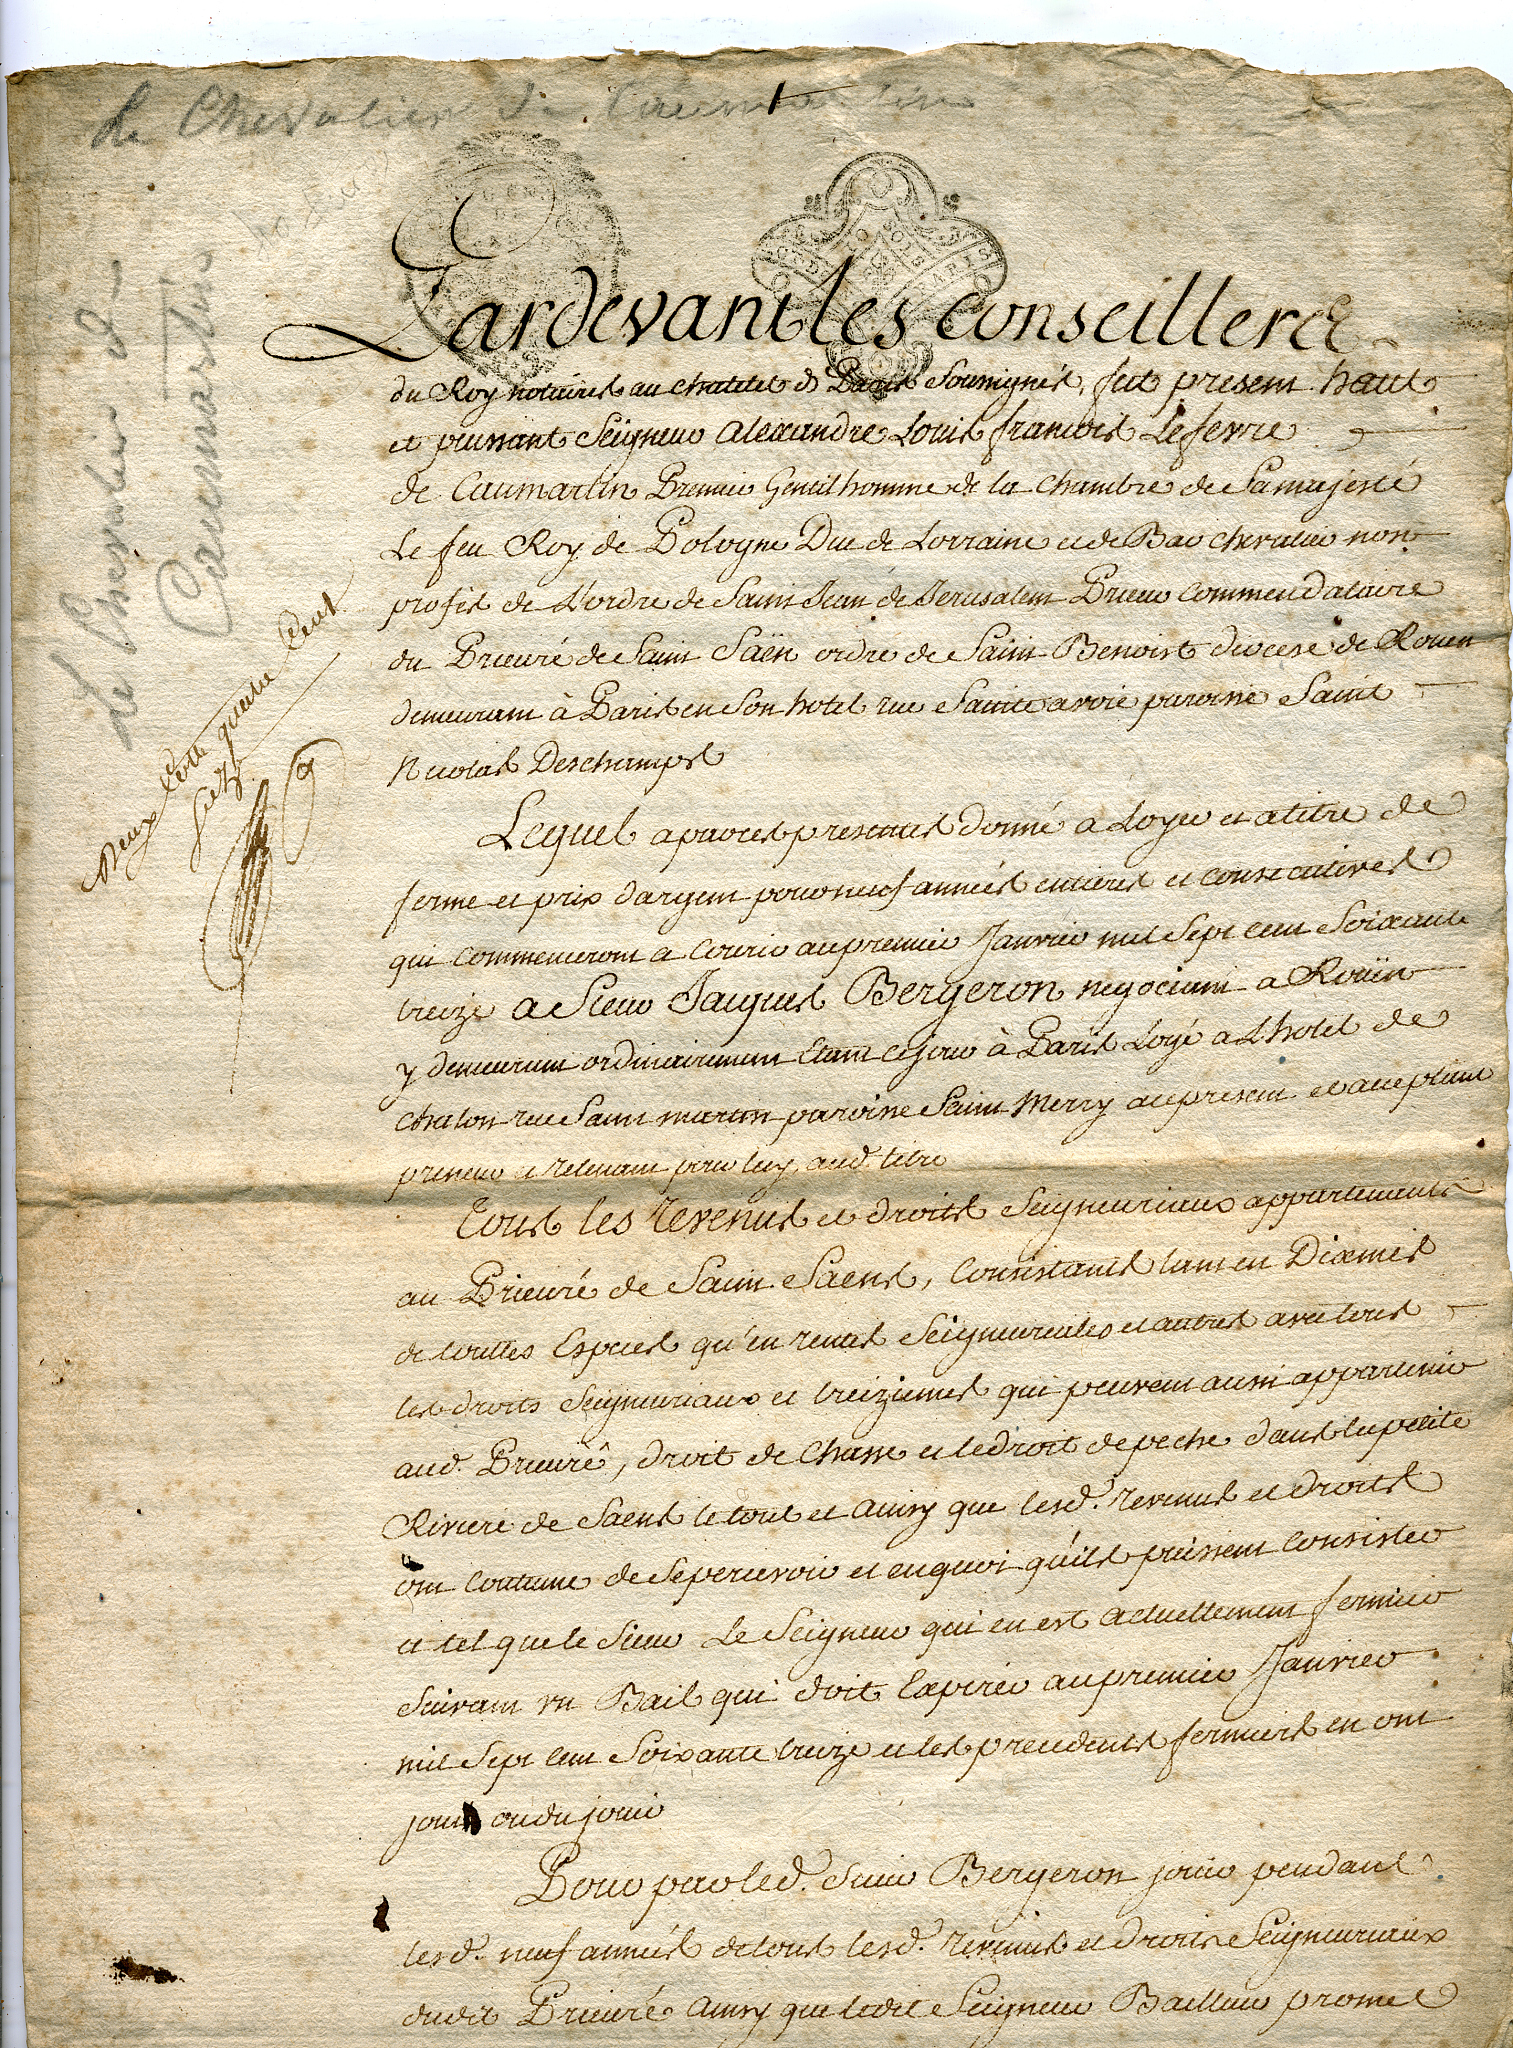 Le Chevalier de Caumartin
Le Chevalier de
Caumartin
Pardevant les Conseillers
du Roy notaires au Chatelet de Paris Soussignés, fut present haut
et puissant Seigneur Alexandre Louis françois Lefevre
de Caumartin Premier Gentilhomme de la Chambre de Samajesté
Le feu Roy de Pologne Duc de Lorraine et de Bar chevalier non
profès de L'ordre de Saint Jean de Jerusalem Prieur Commendataire
du Prieuré de Saint Saën ordre de Saint Benoist diocese de Rouen
demeurant à Paris en Son hotel rue Sainte avoie paroisse Saint
Nicolas Deschamps
Deux Cette quatre Cent
Lequel a par ces presentes donné a Loyer et a titre de
ferme et prix d'argent pour neuf années entieres et consecutives
qui Commenceront a Courir au premier Janvier mil Sept Cent Soixante
treize a Sieur Jacques Bergeron negociant a Roüen
y demeurant ordinairement Etant cejour à Paris Logé a L'hotel de
Chalon rue Saint martin paroisse Saint Merry a ce present et acceptant
preneur et retenant pour luy aud. titre
Tous les revenus et droits Seigneuriaux appartenants
au Prieuré de Saint Saens, Consistants tant en Dixmes
de touttes Especes qu'en rentes Seigneuriales et autres avec tous
les droits Seigneuriaux et treiziemes qui peuvent aussi appartenir
aud. Prieuré, droit de Chasse et le droit de peche dans la petite
Riviere de Saens le tout et ainsy que lesd. revenus et droits
ont Coutume de Se percevoir et en quoi qu'ils puissent Consister
et tel que le Sieur Le Seigneur qui en est actuellement fermier
Suivant un Bail qui doit Expirer au premier Janvier
mil Sept Cent Soixante treize et les precedents fermiers en ont
joui ou du jouir
Pour par led. Sieur Bergeron jouir pendant
lesd. neuf années de tous lesd. revenus et droits Seigneuriaux
dudit Prieuré ainsy que ledit Seigneur Bailleur promet